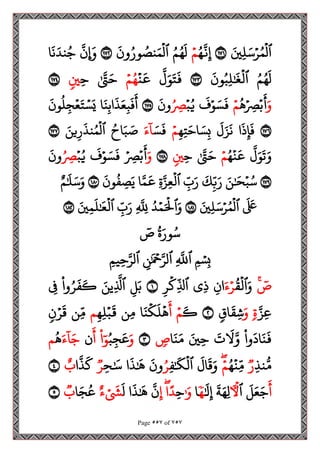 ٱلْمُرْسَلِينَ ١٧١ إِنَّهُمْ لَهُمُ ٱلْمَنصُورُونَ ١٧٢ وَإِنَّ جُندَنَا
لَهُمُ ٱلْغَـٰلِبُونَ ١٧٣ فَتَوَلَّ عَنْهُمْ حَتَّىٰ حِينٍ ١٧٤
وَأَبْصِرْهُمْ فَسَوْفَ يُبْصِرُونَ ١٧٥ أَفَبِعَذَابِنَا يَسْتَعْجِلُونَ
١٧٦ فَإِذَا نَزَلَ بِسَاحَتِهِمْ فَسَآءَ صَبَاحُ ٱلْمُنذَرِينَ ١٧٧
وَتَوَلَّ عَنْهُمْ حَتَّىٰ حِينٍ ١٧٨ وَأَبْصِرْ فَسَوْفَ يُبْصِرُونَ
١٧٩ سُبْحَـٰنَ رَبِّكَ رَبِّ ٱلْعِزَّةِ عَمَّا يَصِفُونَ ١٨٠ وَسَلَـٰمٌ
عَلَى ٱلْمُرْسَلِينَ ١٨١ وَٱلْحَمْدُ لِلَّهِ رَبِّ ٱلْعَـٰلَمِينَ ١٨٢
سُورَةُ ص
بِسْمِ ٱللَّهِ ٱلرَّحْمَـٰنِ ٱلرَّحِيمِ
صٓ ۚ وَٱلْقُرْءَانِ ذِى ٱلذِّكْرِ ١ بَلِ ٱلَّذِينَ كَفَرُوا۟ فِى
عِزَّةٍ وَشِقَاقٍ ٢ كَمْ أَهْلَكْنَا مِن قَبْلِهِم مِّن قَرْنٍ
فَنَادَوا۟ وَّلَاتَ حِينَ مَنَاصٍ ٣ وَعَجِبُوٓا۟ أَن جَآءَهُم
مُّنذِرٌ مِّنْهُمْ ۖ وَقَالَ ٱلْكَـٰفِرُونَ هَـٰذَا سَـٰحِرٌ كَذَّابٌ ٤
أَجَعَلَ ٱلْـَٔالِهَةَ إِلَـٰهًا وَٰحِدًا ۖ إِنَّ هَـٰذَا لَشَىْءٌ عُجَابٌ ٥
Page ٥٥٧ of ٧٥٧